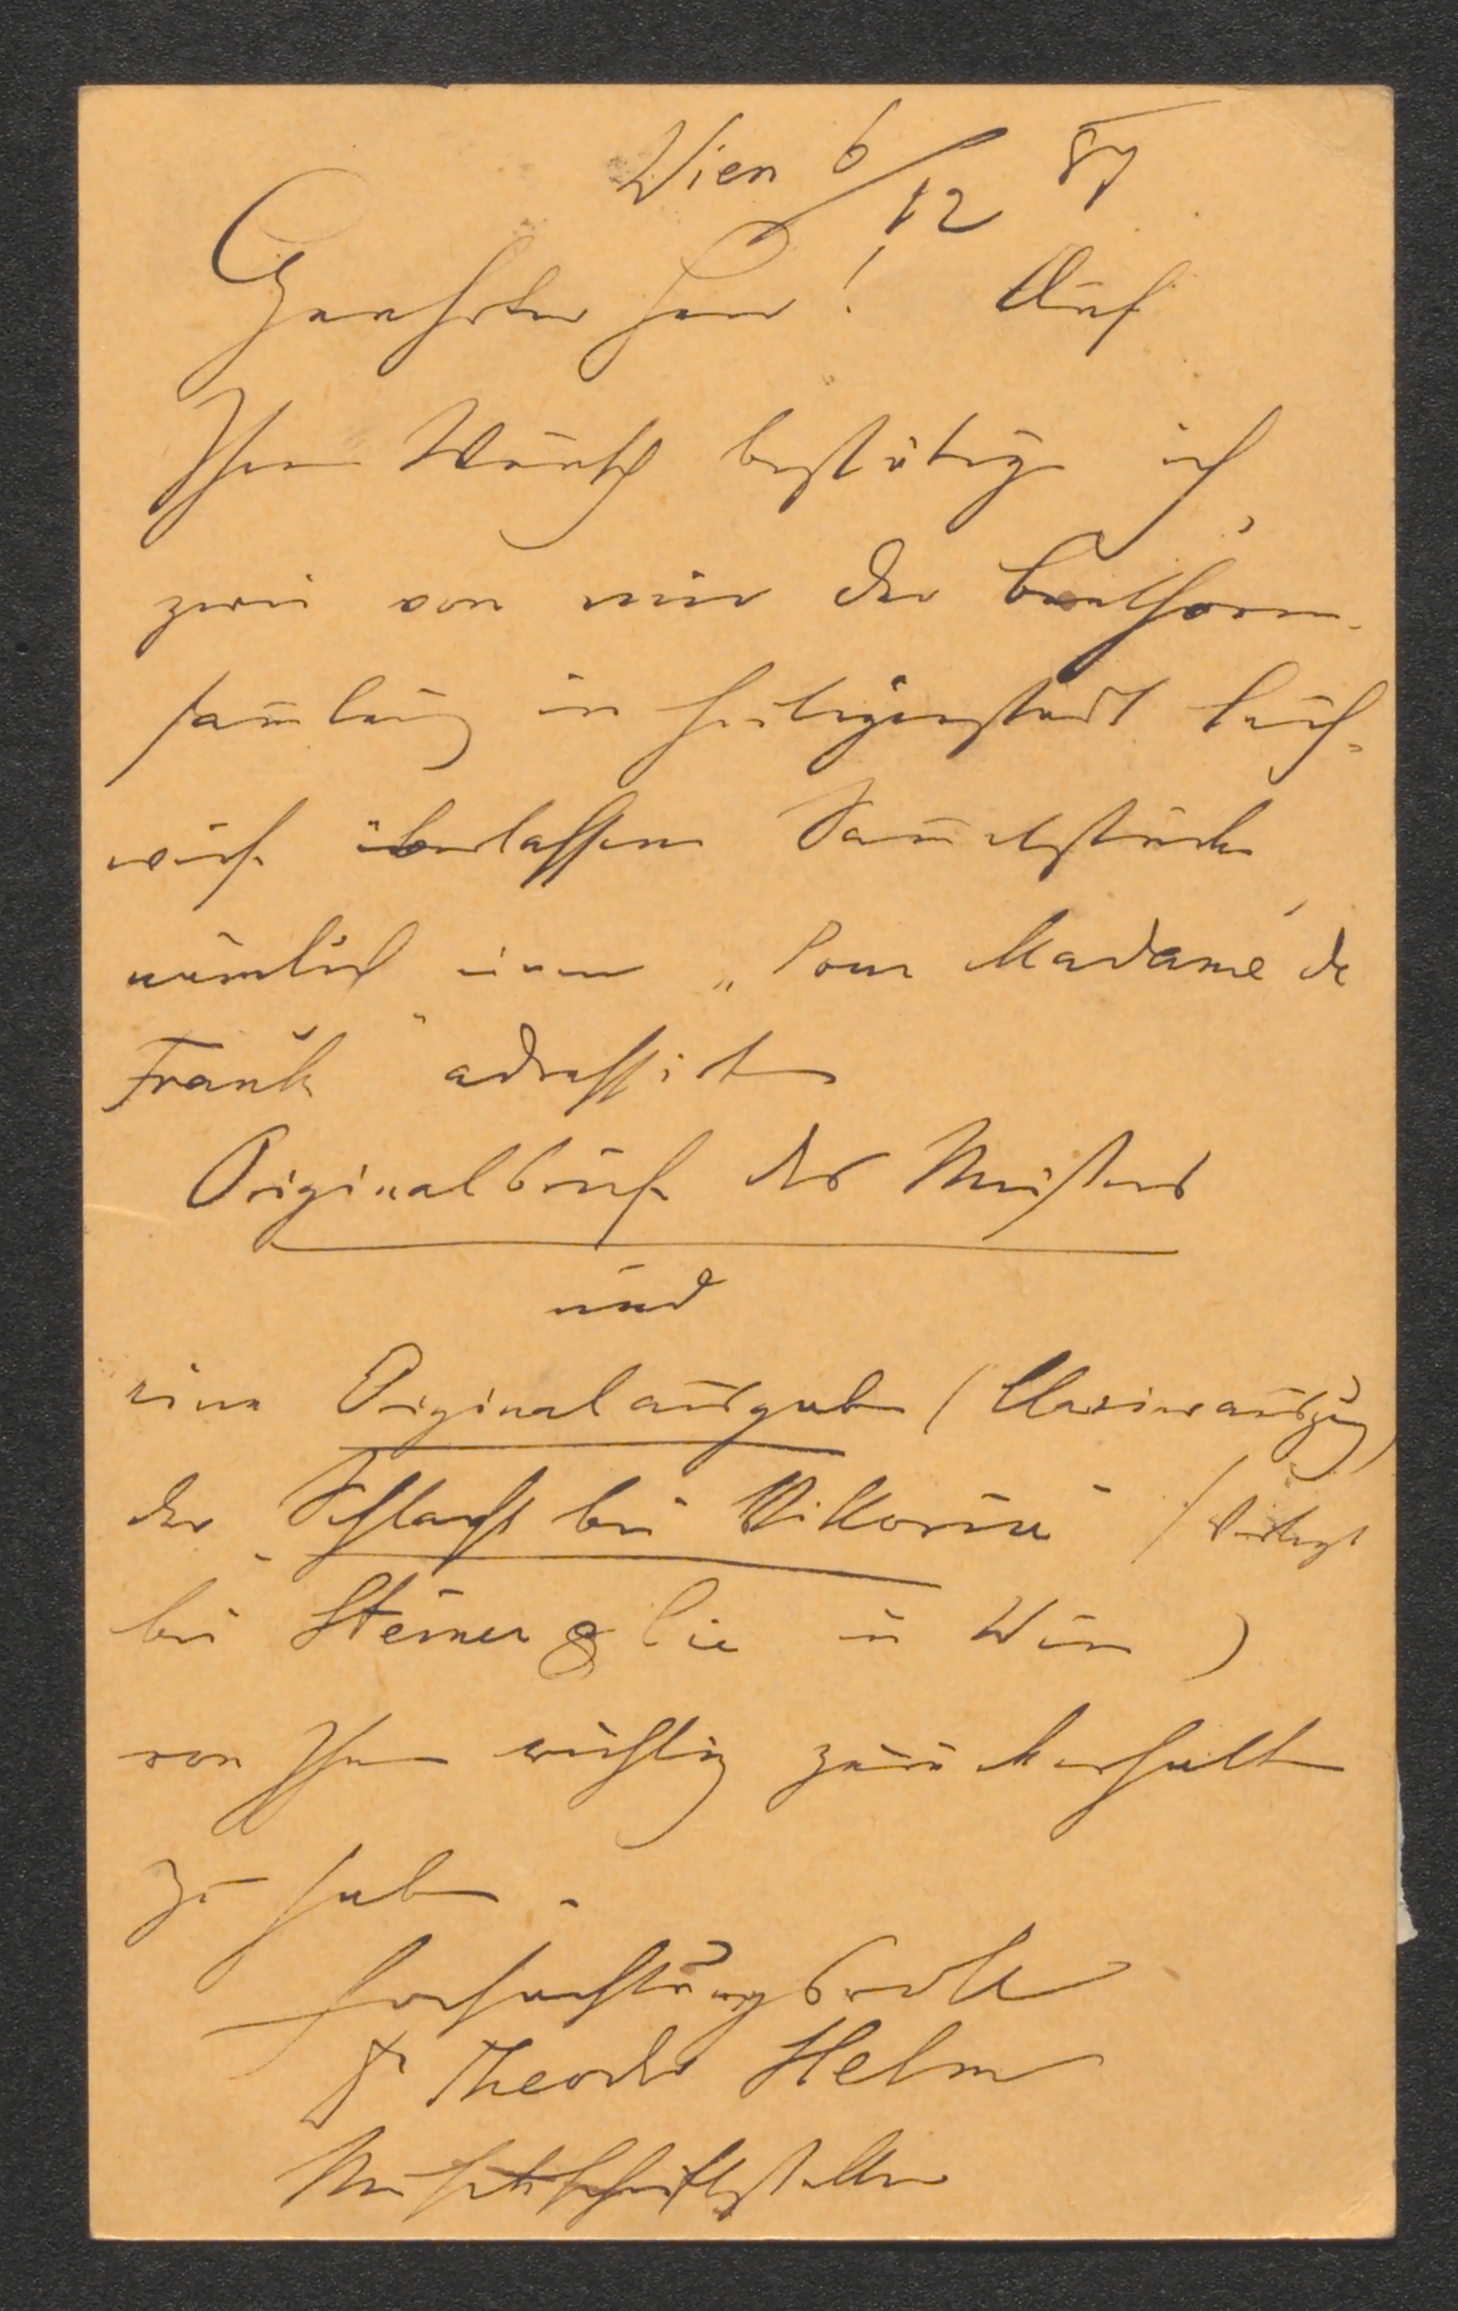 Wien 6/12 87
Geehrter Herr! Auf
Ihren Wunsch bestätige ich,
zwei von mir der Beethoven-
sammlung in Heiligenstadt leih-
weise überlassene Sammelstücke,
nämlich einen „Pour Madame de
Frank" adressirten
Originalbrief des Meisters
und
eine Originalausgabe (Klavierauszug)
der „Schlacht bei Vittoria" (verlegt
bei Steiner & Cie in Wien)
von Ihnen richtig zurückerhalten
zu haben.
Hochachtungsvoll
Dr Theodor Helm
Musikschriftsteller